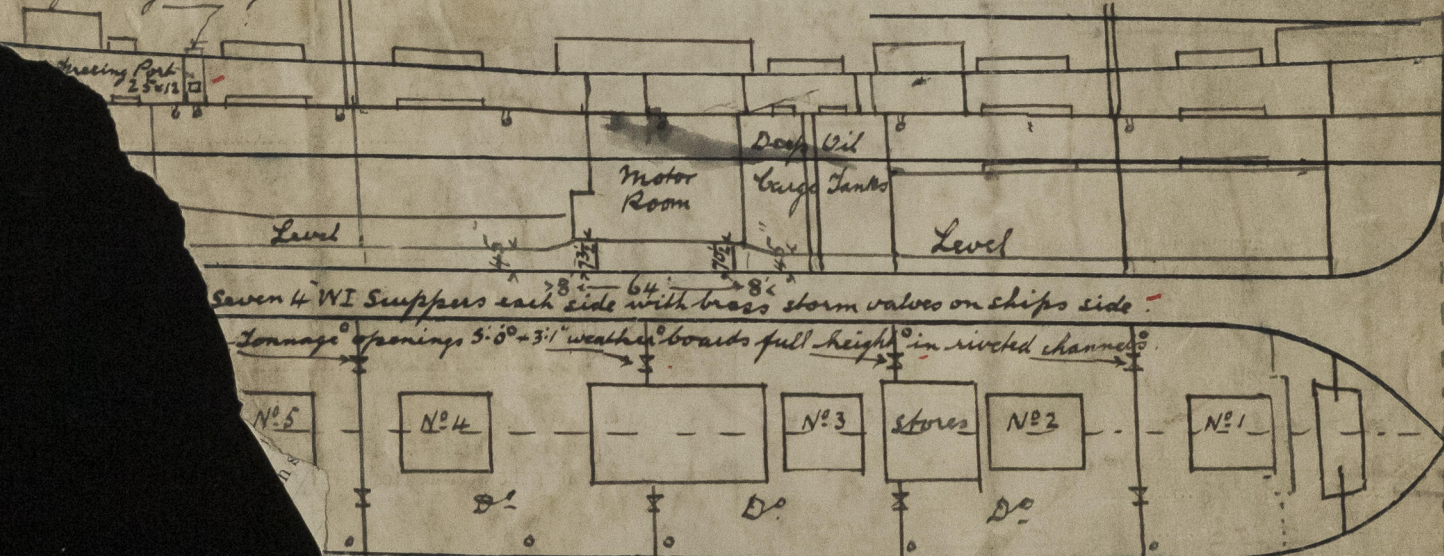 Freeing Port
25x12
Deep Oil
Cargo Tanks
Motor
Room
Level
Level
8' 64 8'
Seven 4" WI Scuppers each side with brass storm valves on ships side.
Tonnage openings 5'.0" + 3'.1" weather boards full height in riveted channels.
No. 5
No. 4
No. 3
stores
No. 2
No. 1
Do
Do
Do